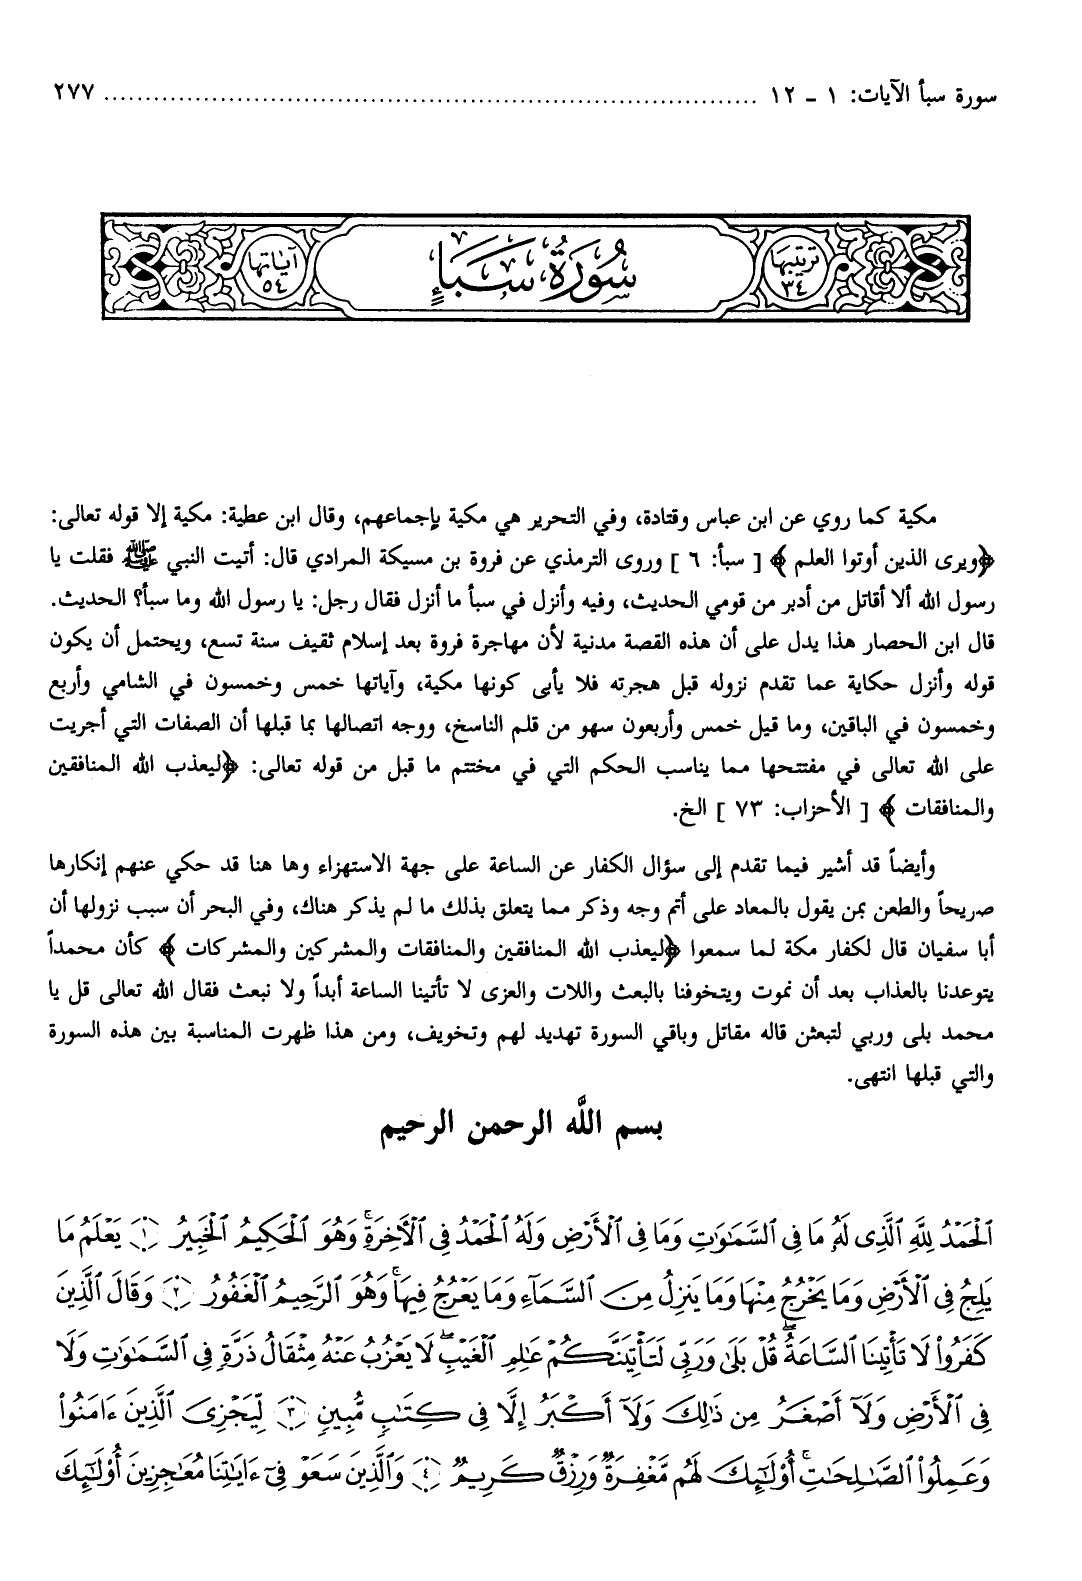 سورة سبأ الآيات: ١ - ١٢ ................................................................................ ٢٧٧
ترتيبها ٣٤
سُورَةُ سَبَأٍ
آياتها ٥٤
مكية كما روي عن ابن عباس وقتادة، وفي التحرير هي مكية بإجماعهم، وقال ابن عطية: مكية إلا قوله تعالى:
﴿ويرى الذين أوتوا العلم﴾ [ سبأ: ٦ ] وروى الترمذي عن فروة بن مسيكة المرادي قال: أتيت النبي ﷺ فقلت يا
رسول الله ألا أقاتل من أدبر من قومي الحديث، وفيه وأنزل في سبأ ما أنزل فقال رجل: يا رسول الله وما سبأ؟ الحديث.
قال ابن الحصار هذا يدل على أن هذه القصة مدنية لأن مهاجرة فروة بعد إسلام ثقيف سنة تسع، ويحتمل أن يكون
قوله وأنزل حكاية عما تقدم نزوله قبل هجرته فلا يأبى كونها مكية، وآياتها خمس وخمسون في الشامي وأربع
وخمسون في الباقين، وما قيل خمس وأربعون سهو من قلم الناسخ، ووجه اتصالها بما قبلها أن الصفات التي أجريت
على الله تعالى في مفتتحها مما يناسب الحكم التي في مختتم ما قبل من قوله تعالى: ﴿ليعذب الله المنافقين
والمنافقات﴾ [ الأحزاب: ٧٣ ] الخ.
وأيضاً قد أشير فيما تقدم إلى سؤال الكفار عن الساعة على جهة الاستهزاء وها هنا قد حكي عنهم إنكارها
صريحاً والطعن بمن يقول بالمعاد على أتم وجه وذكر مما يتعلق بذلك ما لم يذكر هناك، وفي البحر أن سبب نزولها أن
أبا سفيان قال لكفار مكة لما سمعوا ﴿ليعذب الله المنافقين والمنافقات والمشركين والمشركات﴾ كأن محمداً
يتوعدنا بالعذاب بعد أن نموت ويتخوفنا بالبعث واللات والعزى لا تأتينا الساعة أبداً ولا نبعث فقال الله تعالى قل يا
محمد بلى وربي لتبعثن قاله مقاتل وباقي السورة تهديد لهم وتخويف، ومن هذا ظهرت المناسبة بين هذه السورة
والتي قبلها انتهى.
بسم اللَّه الرحمن الرحيم
ٱلْحَمْدُ لِلَّهِ ٱلَّذِى لَهُۥ مَا فِى ٱلسَّمَٰوَٰتِ وَمَا فِى ٱلْأَرْضِ وَلَهُ ٱلْحَمْدُ فِى ٱلْأَخِرَةِۚ وَهُوَ ٱلْحَكِيمُ ٱلْخَبِيرُ ۝١ يَعْلَمُ مَا
يَلِجُ فِى ٱلْأَرْضِ وَمَا يَخْرُجُ مِنْهَا وَمَا يَنزِلُ مِنَ ٱلسَّمَآءِ وَمَا يَعْرُجُ فِيهَاۚ وَهُوَ ٱلرَّحِيمُ ٱلْغَفُورُ ۝٢ وَقَالَ ٱلَّذِينَ
كَفَرُوا۟ لَا تَأْتِينَا ٱلسَّاعَةُۖ قُلْ بَلَىٰ وَرَبِّى لَتَأْتِيَنَّكُمْ عَٰلِمِ ٱلْغَيْبِۖ لَا يَعْزُبُ عَنْهُ مِثْقَالُ ذَرَّةٍ فِى ٱلسَّمَٰوَٰتِ وَلَا
فِى ٱلْأَرْضِ وَلَآ أَصْغَرُ مِن ذَٰلِكَ وَلَآ أَكْبَرُ إِلَّا فِى كِتَٰبٍ مُّبِينٍ ۝٣ لِّيَجْزِىَ ٱلَّذِينَ ءَامَنُوا۟
وَعَمِلُوا۟ ٱلصَّٰلِحَٰتِۚ أُو۟لَٰٓئِكَ لَهُم مَّغْفِرَةٌ وَرِزْقٌ كَرِيمٌ ۝٤ وَٱلَّذِينَ سَعَوْ فِىٓ ءَايَٰتِنَا مُعَٰجِزِينَ أُو۟لَٰٓئِكَ